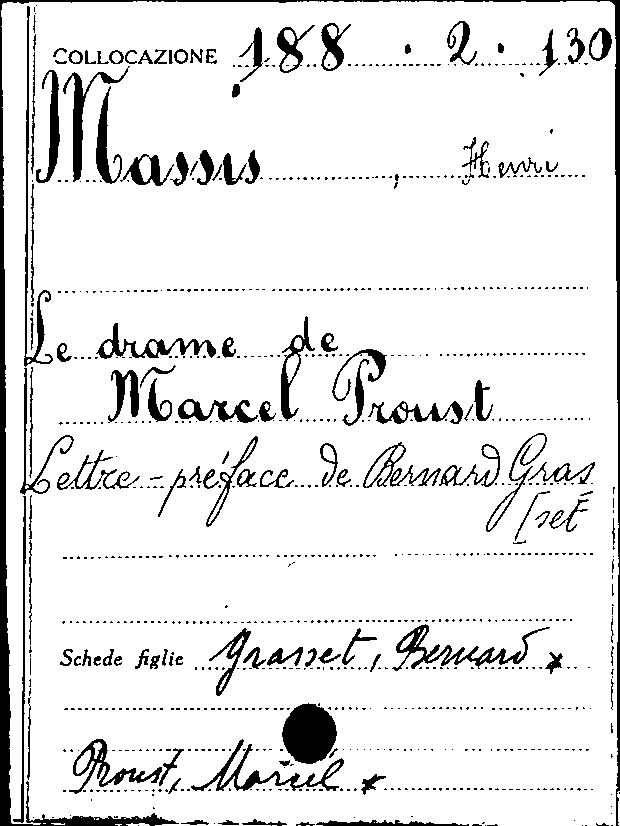 COLLOCAZIONE 188 . 2 . 130
Massis , Henri
Le drame de
Marcel Proust
Lettre-préface de Bernard Gras
[set
Schede figlie Grasset, Bernard *
Proust, Marcel *